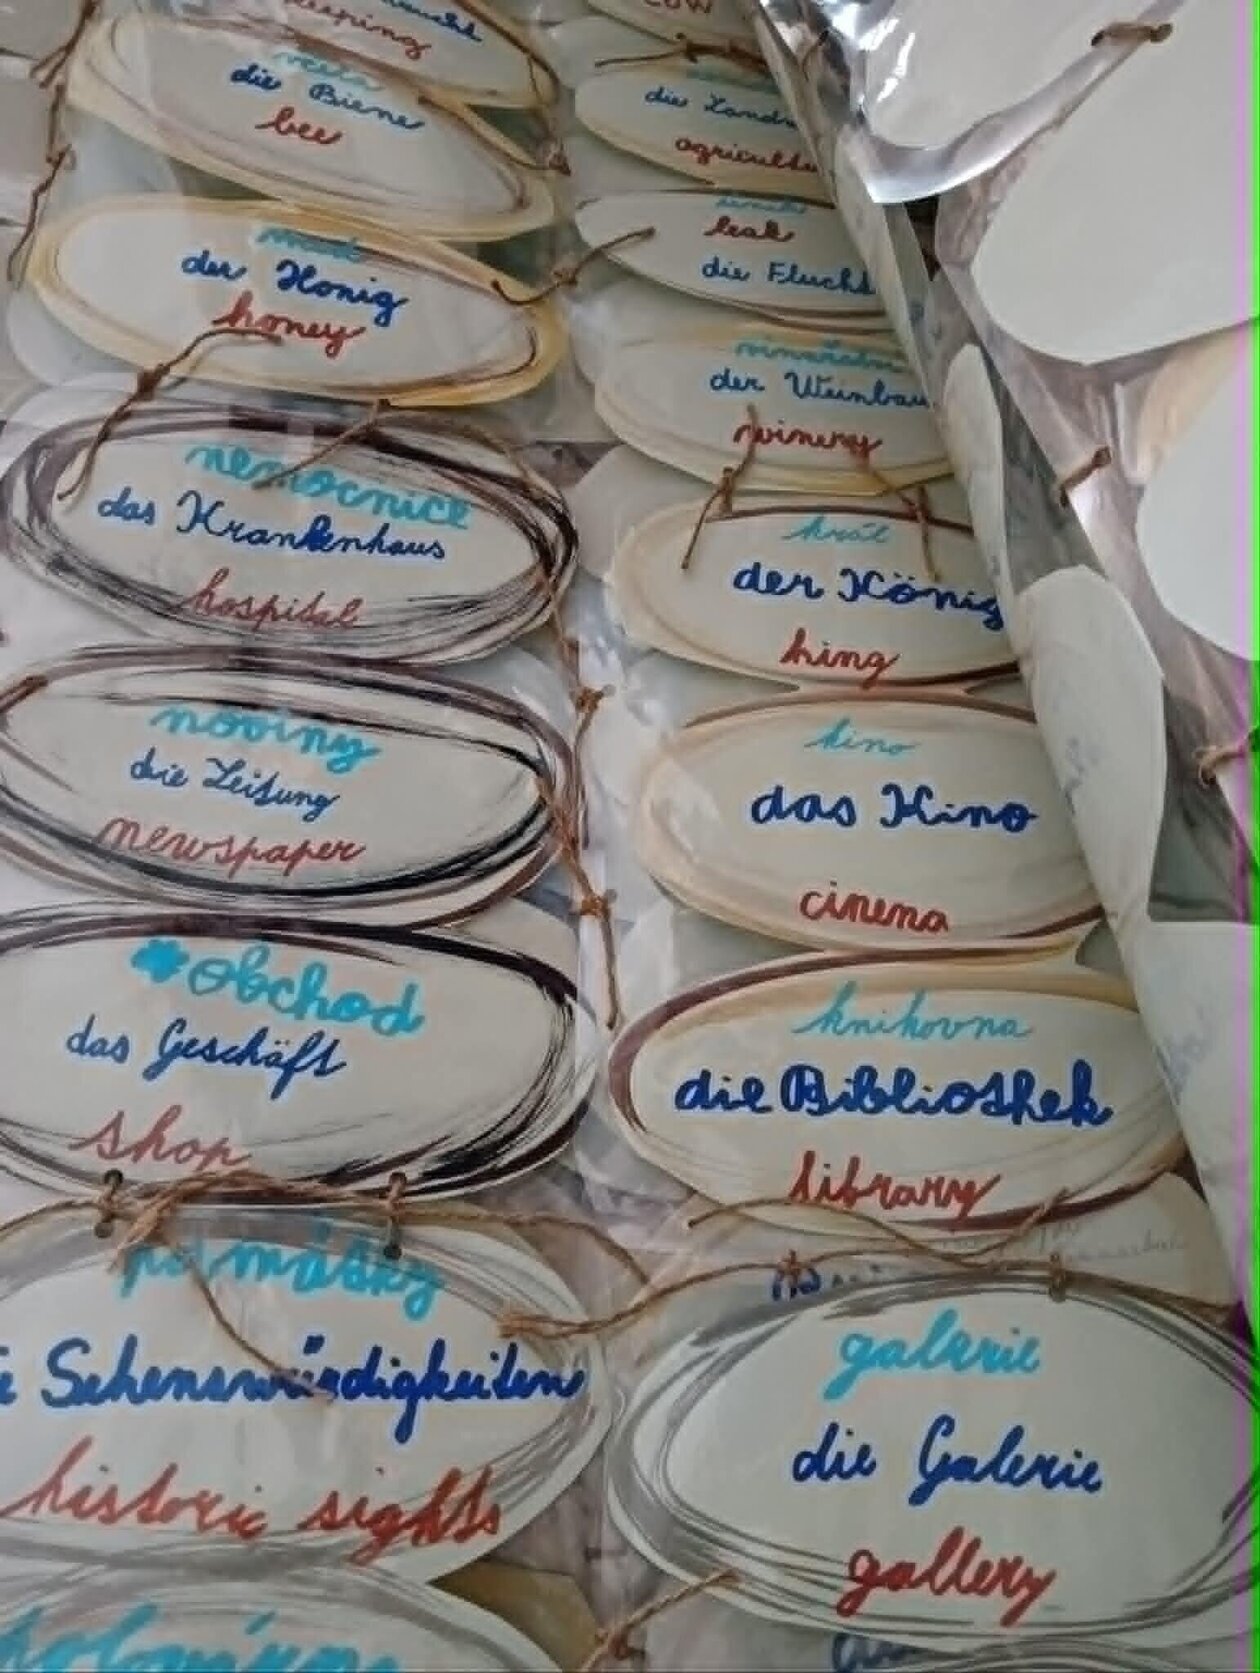 die Biene
bee
der Honig
honey
nemocnice
das Krankenhaus
hospital
noviny
die Zeitung
newspaper
obchod
das Geschäft
shop
památky
Sehenswürdigkeiten
historic sights
cow
die
leak
die
der Weinbau
winery
král
der König
king
kino
das Kino
cinema
knihovna
die Bibliothek
library
galerie
die Galerie
gallery